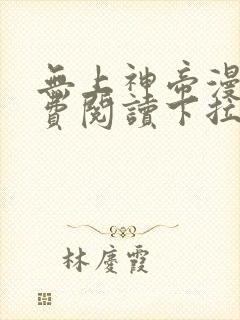 無上神帝漫
費閱讀下拉
林慶霞